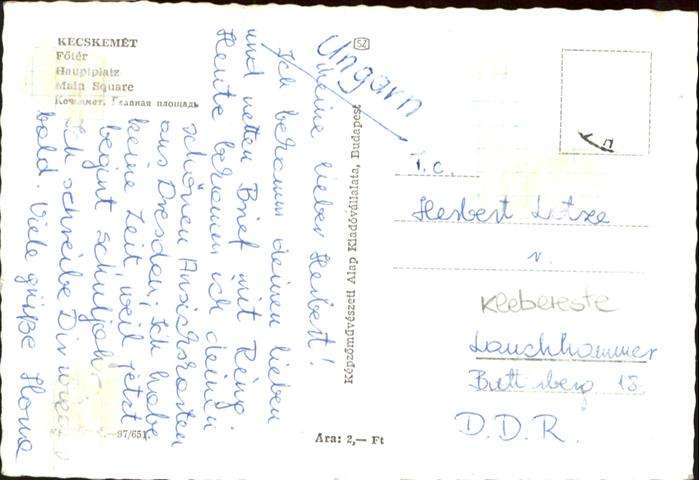 KECSKEMÉT
Főtér
Hauptplatz
Main Square
Кечкемет. Главная площадь
Ungarn
Meine lieber Herbert!
Ich bekamm deinen lieben
und netten Brief mit Ring.
Heute bekamm ich deinen
schönen Ansichtskarten
aus Dresden; Ich habe
keine Zeit weil jetzt
begint schuljah.
Ich schreibe Dir
bald. Viele grüße
Képzőművészeti Alap Kiadóvállalata, Budapest
SZ
T.c.
Herbert
Klebereste
Lauchhammer
15
D.D.R.
—97/651.
Ára: 2,— Ft